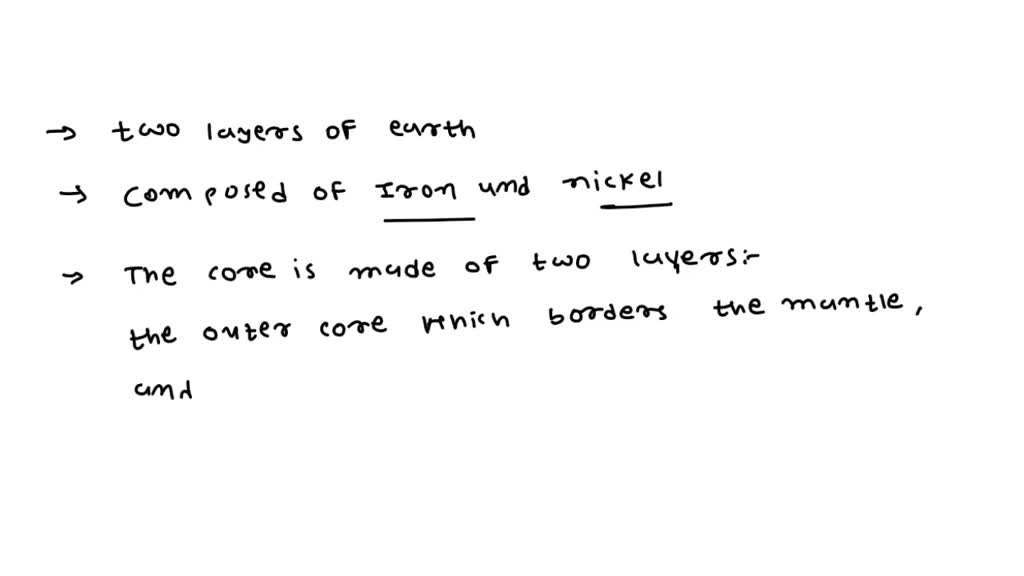 → two layers of earth
→ Composed of Iron and nickel
→ The core is made of two layers:-
the outer core which borders the mantle,
and